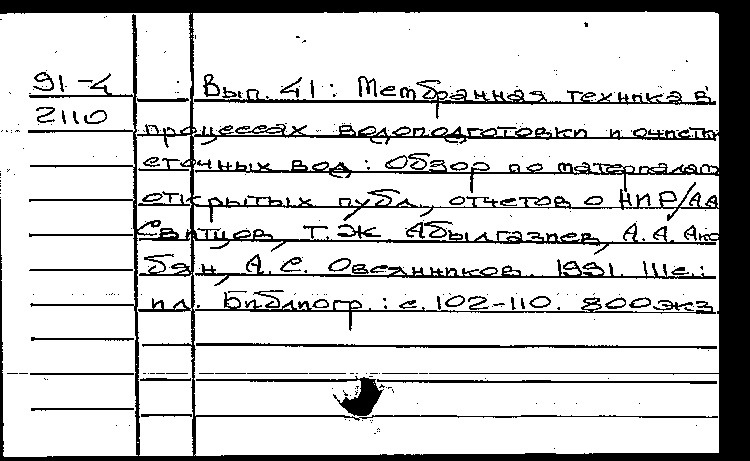 91-4
2110
Вып. 41: Мембранная техника в
процессах водоподготовки и очистк
сточных вод: Обзор по материалам
открытых публ., отчетов о НИР/А.А
Свитцов, Т.Ж. Абылгазиев, А.А. Ако
бян, А.С. Овсянников. 1991. 111с.:
ил. Библиогр.: с. 102-110. 800экз.